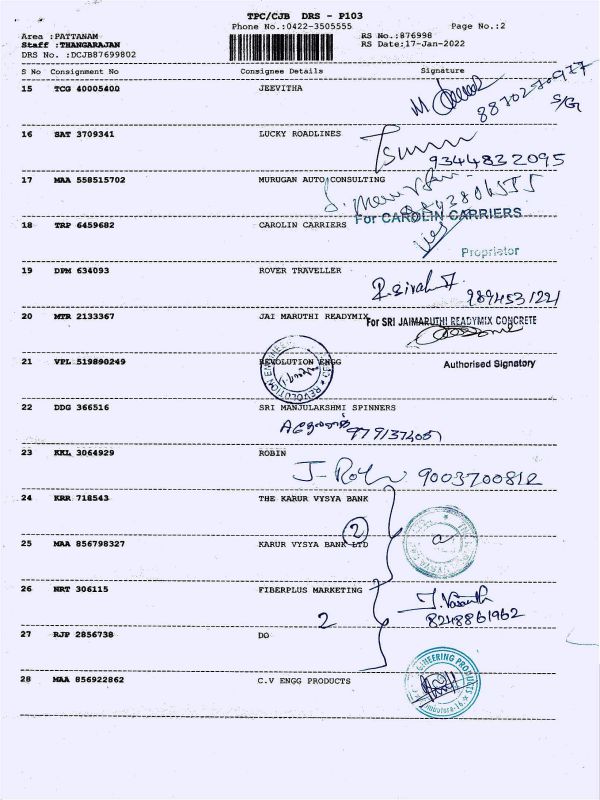 TPC/CJB DRS - P103
Phone No.:0422-3505555
Page No.:2
Area :PATTANAM
RS No.:876998
Staff :THANGARAJAN
RS Date:17-Jan-2022
DRS No. :DCJB87699802
S No Consignment No Consignee Details Signature
15 TCG 40005400 JEEVITHA
S/G
16 SAT 3709341 LUCKY ROADLINES
9344832095
17 MAA 558515702 MURUGAN AUTO CONSULTING
For CAROLIN CARRIERS
18 TRP 6459682 CAROLIN CARRIERS
Proprietor
19 DPM 634093 ROVER TRAVELLER
9894531221
20 MTR 2133367 JAI MARUTHI READYMIX
For SRI JAIMARUTHI READYMIX CONCRETE
21 VPL 519890249 REVOLUTION ENGG
Authorised Signatory
22 DDG 366516 SRI MANJULAKSHMI SPINNERS
23 KKL 3064929 ROBIN
9003700812
24 KRR 718543 THE KARUR VYSYA BANK
2
25 MAA 856798327 KARUR VYSYA BANK LTD
26 NRT 306115 FIBERPLUS MARKETING
J. Vasanth
8248861962
2
27 RJP 2856738 DO
28 MAA 856922862 C.V ENGG PRODUCTS